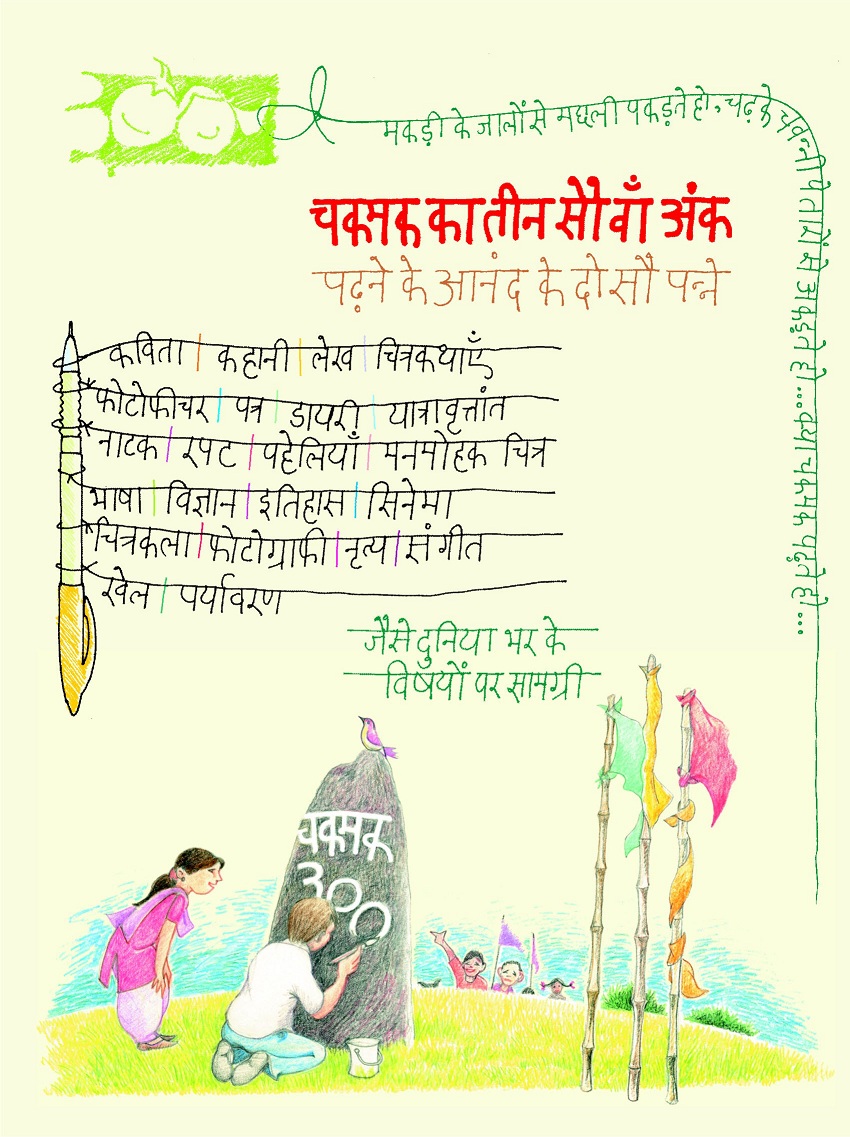 मकड़ी के जालों से मछली पकड़ते हो, चढ़ के चवन्नी पे तारों से अकड़ते हो... क्या चकमक पढ़ते हो...
चकमक का तीन सौवाँ अंक
पढ़ने के आनंद के दो सौ पन्ने
कविता | कहानी | लेख | चित्रकथाएँ
फोटोफीचर | पत्र | डायरी | यात्रावृत्तांत
नाटक | रपट | पहेलियाँ | मनमोहक चित्र
भाषा | विज्ञान | इतिहास | सिनेमा
चित्रकला | फोटोग्राफी | नृत्य | संगीत
खेल | पर्यावरण
जैसे दुनिया भर के
विषयों पर सामग्री
चकमक
300